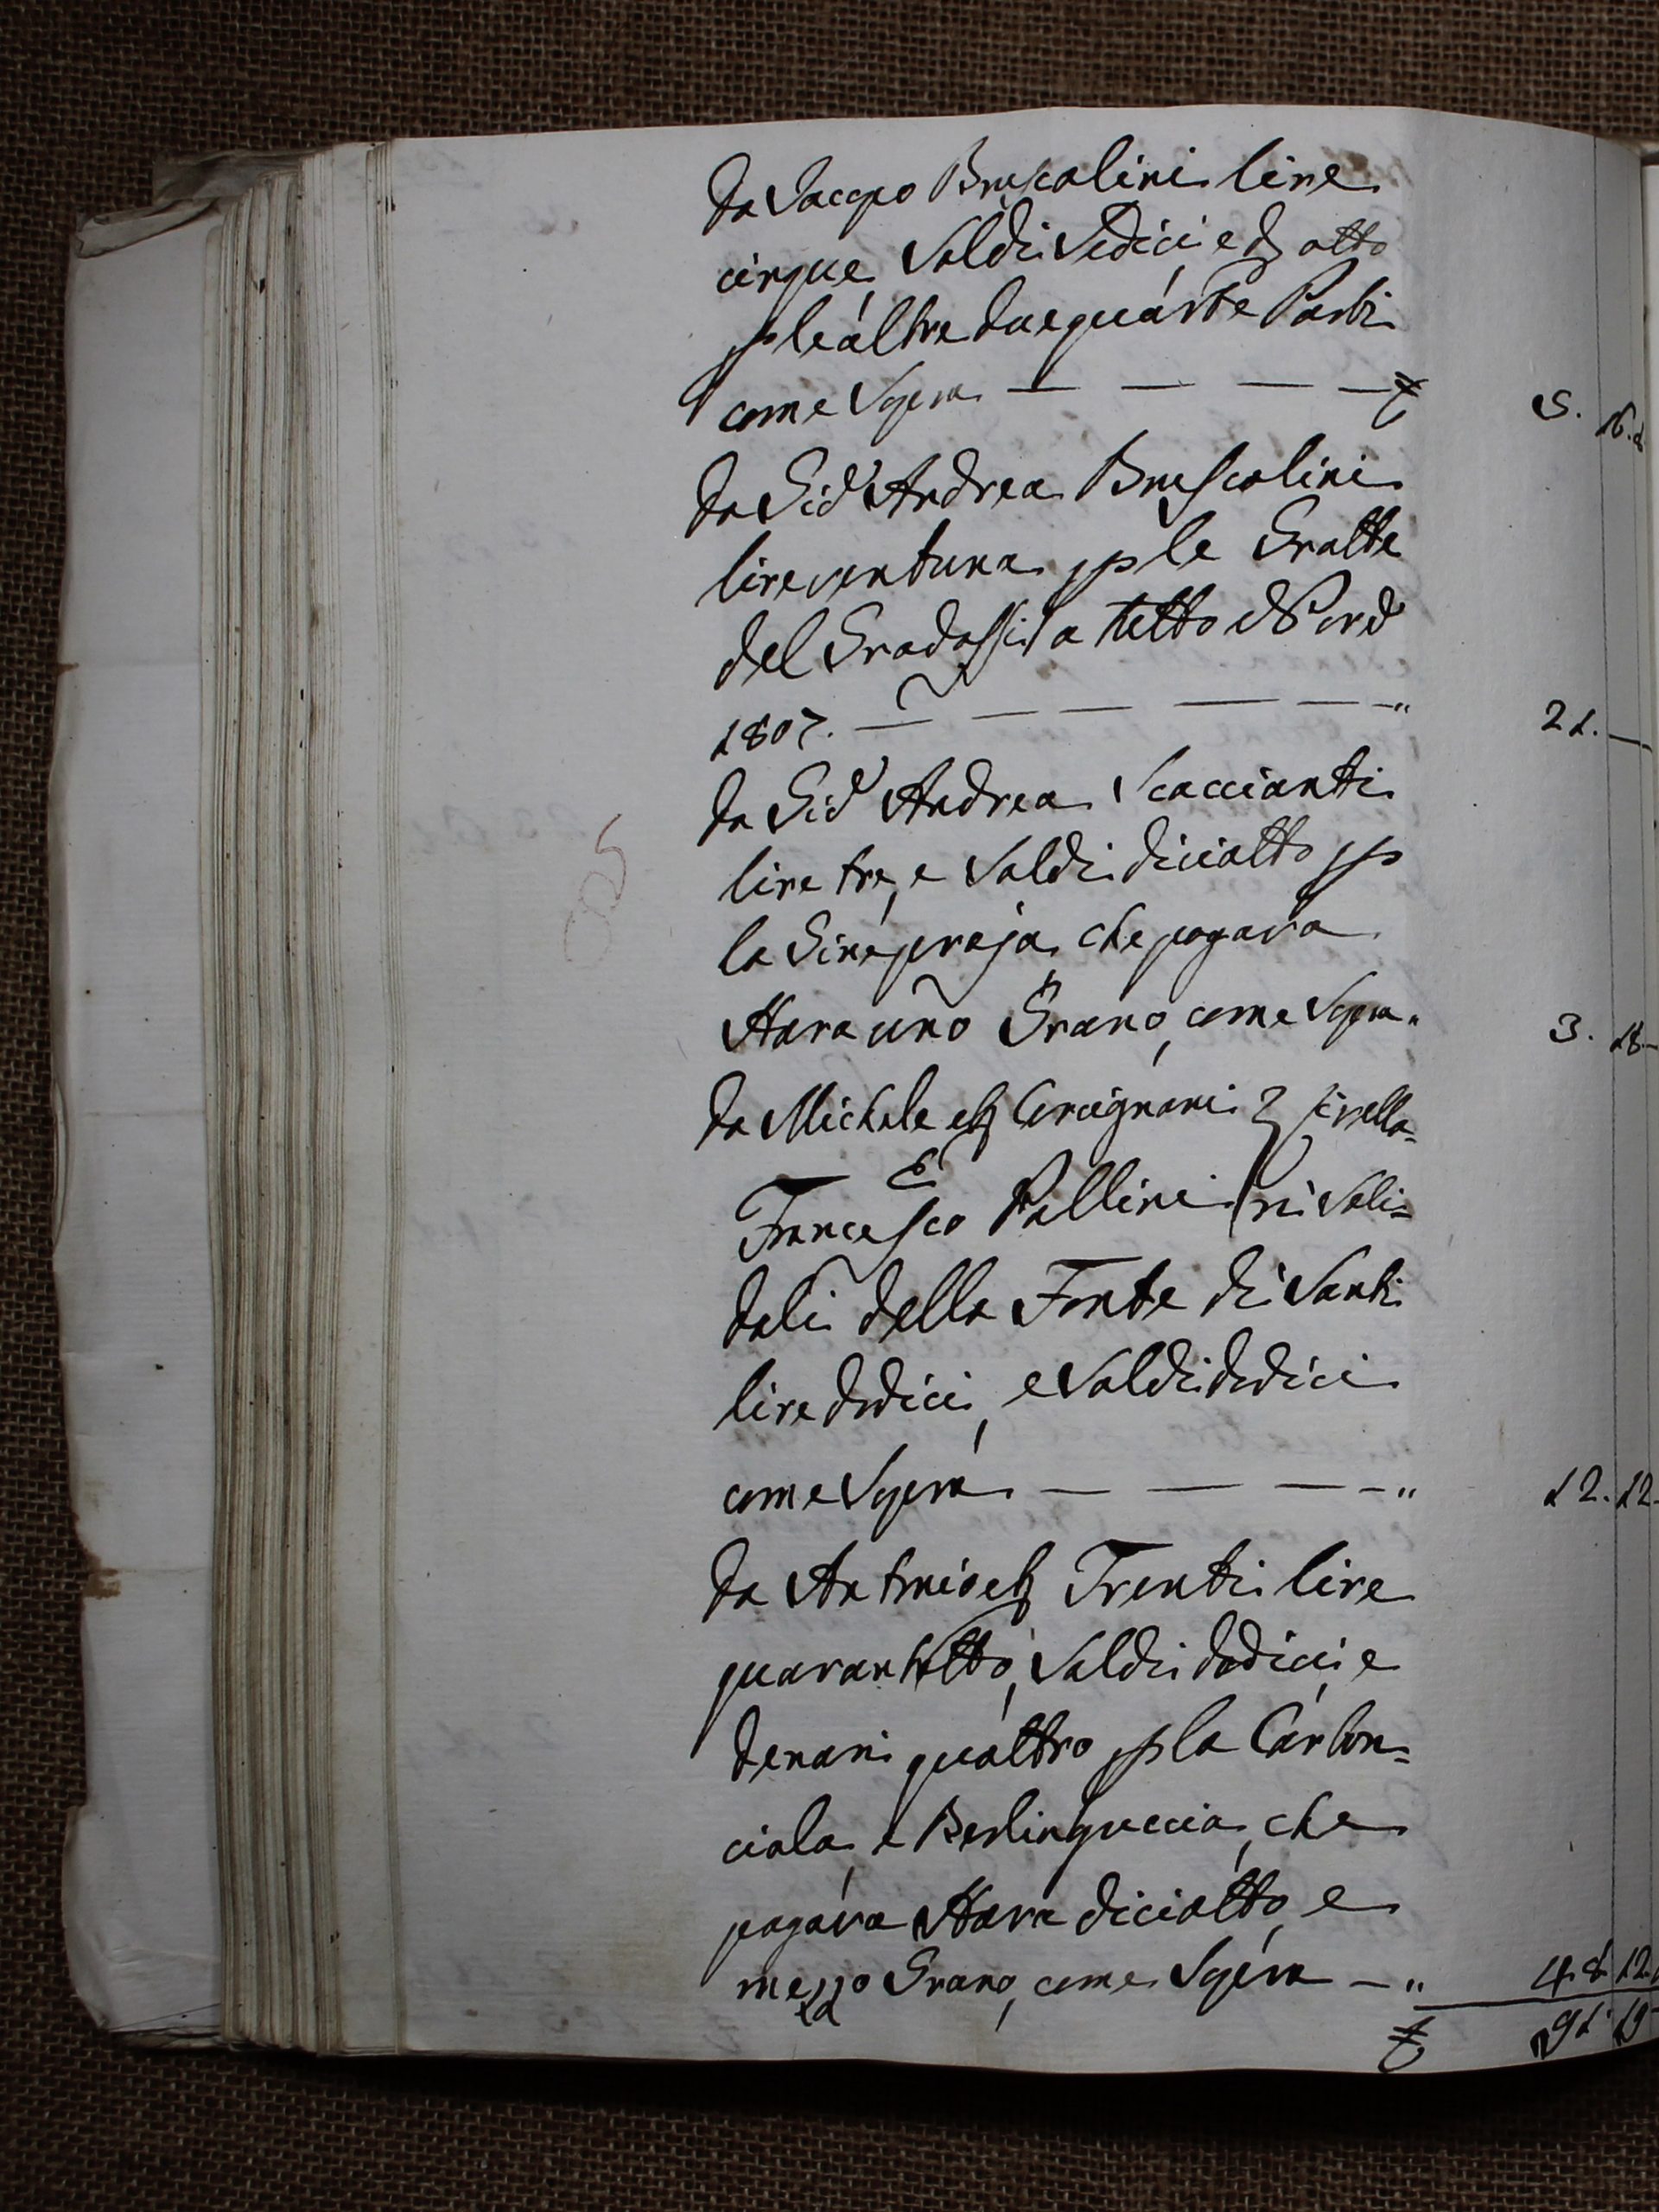 da Jacopo Bruscolini lire
cinque, Soldi Sedici, e d. otto
p le altre due quarte Parti
come Sopra — — — — £ 5. 16. 8
da Gio Andrea Bruscolini
lire ventuna p le Gratte
del Gradassi a tutto
1807. — — — — — " 21. —
da Gio Andrea Scaccianti
lire tre, e Soldi diciotto p
la Ginepraja, che pagava
Stara uno Grano, come Sopra " 3. 18 —
da Michele Cercignani } livella-
E
Francesco Pallini } ri Soli=
dali della Fonte di Santi
lire dodici, e Soldi dodici
come Sopra — — — — " 12. 12 —
da Antonio Trenti lire
quarantotto, Soldi dodici, e
denari quattro p la Carbon=
ciala, e Berlinguccia, che
pagava Stara diciotto, e
mezzo Grano, come Sopra — " 48. 12.
£ 91. 19